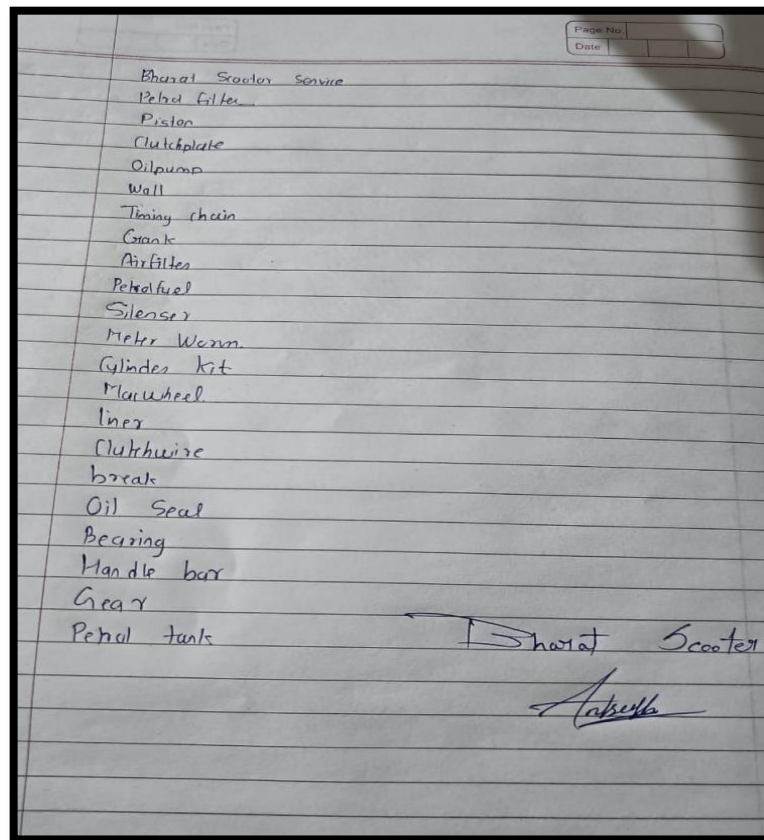 Page No.
Date
Bharat Scooter Service
Petrol filter
Piston
Clutchplate
Oilpump
Wall
Timing chain
Crank
Airfilter
Petrolfuel
Silenser
Meter Worm.
Cylinder Kit
Macwheel
liner
Clutchwire
break
Oil Seal
Bearing
Handle bar
Gear
Petrol tank
Bharat Scooter